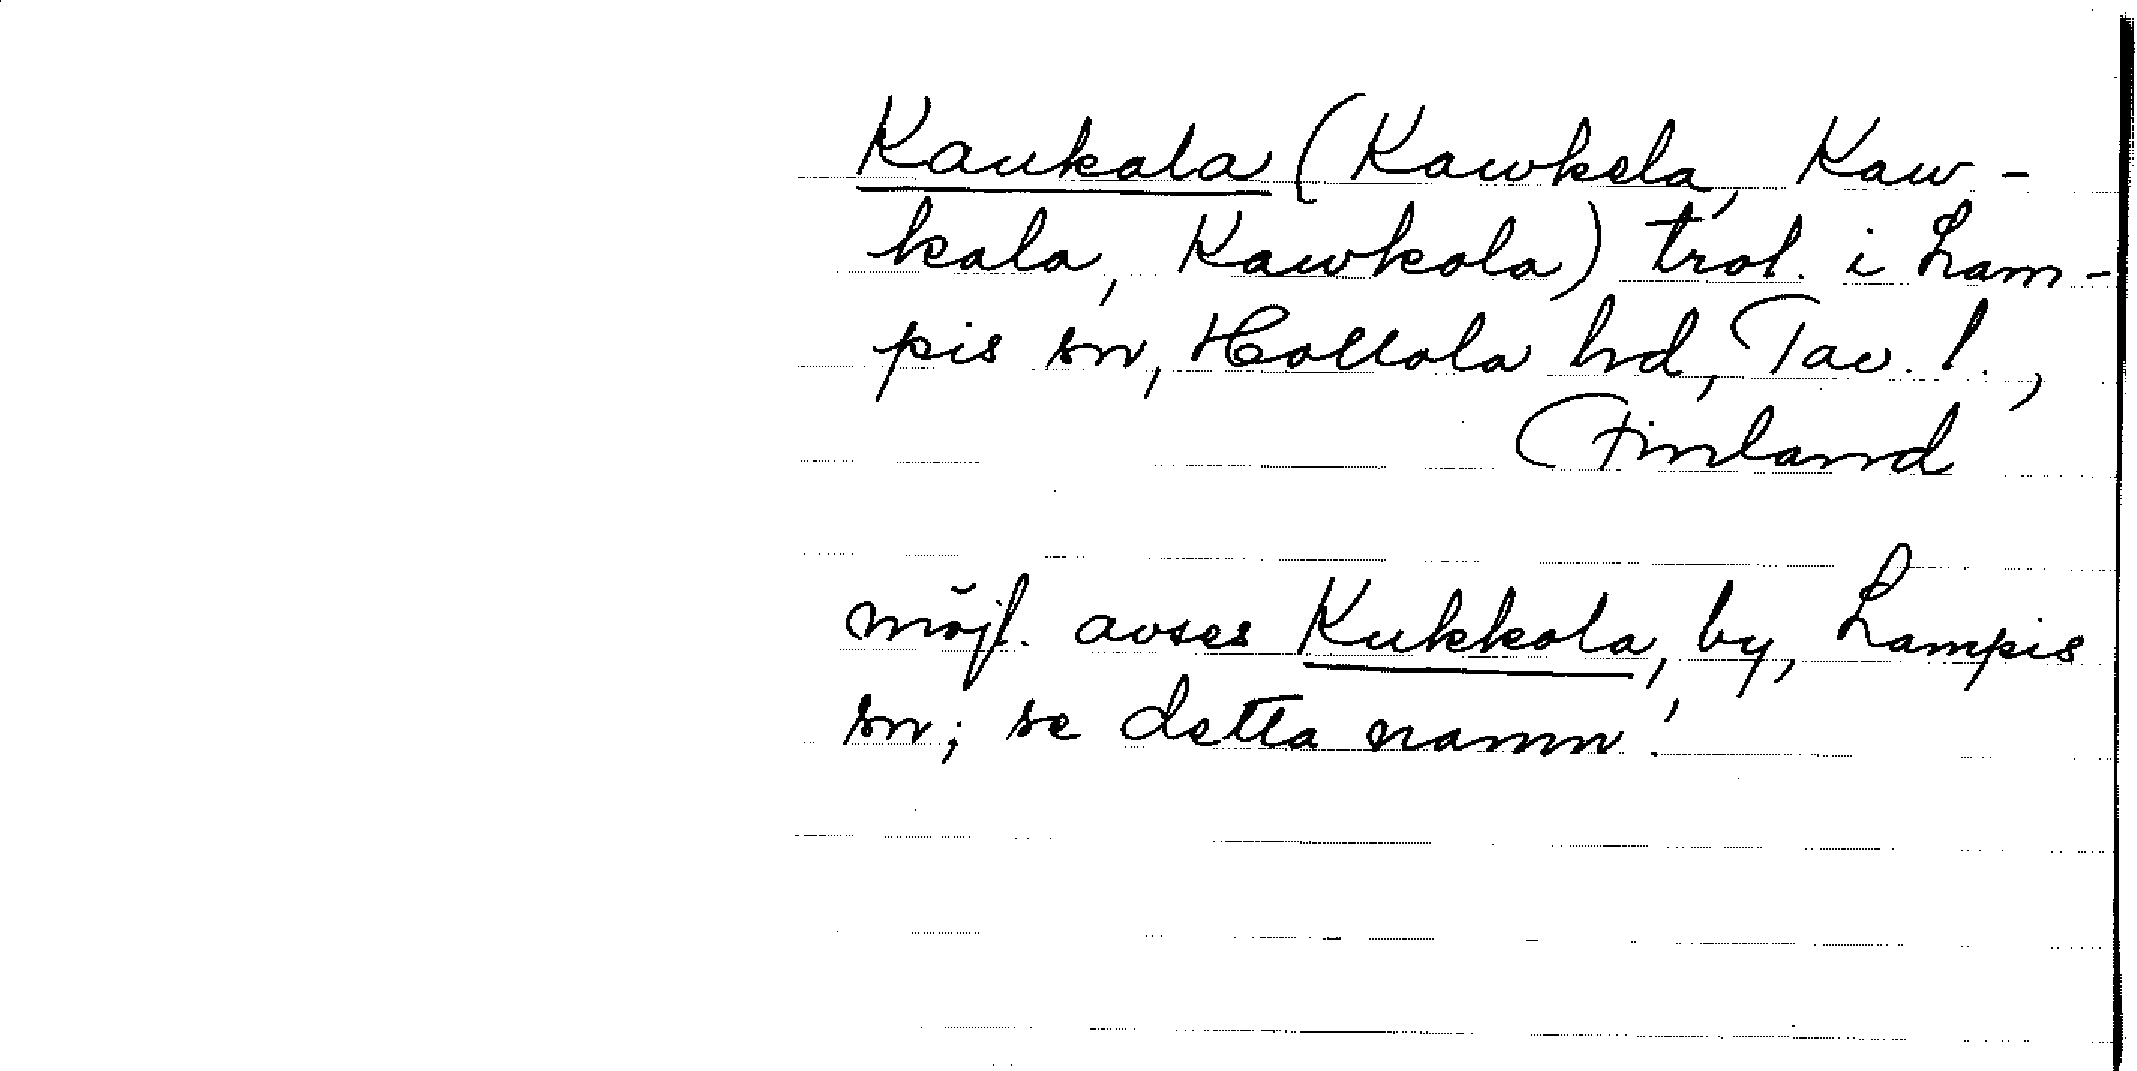 Kaukala (Kawkela, Kaw-
kala, Kawkola) trol. i Lam-
pis sn, Hollola hd, Tav. l.,
Finland
möjl. avses Kukkola, by, Lampis
sn; se detta namn!